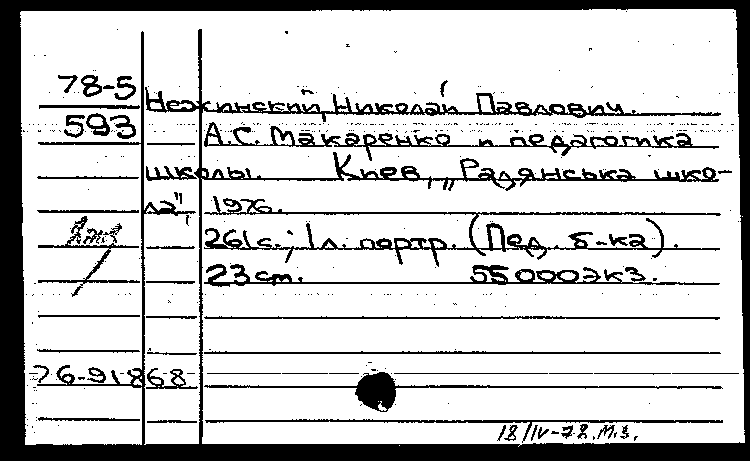 78-5
Нежинский, Николай Павлович.
593
А.С. Макаренко и педагогика
школы. Киев, „Радянська шко-
ла", 1976.
261с.; 1л. портр. (Пед. б-ка).
23 ст. 55000экз.
76-91868
18/IV-78. М.З.